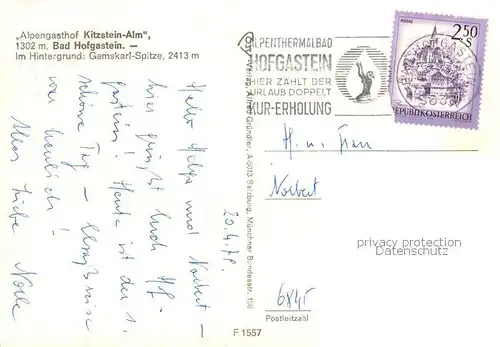 „Alpengasthof Kitzstein-Alm",
1302 m. Bad Hofgastein. —
Im Hintergrund: Gamskarl-Spitze, 2413 m
Hallo Helga und Norbert –
hier grüßt Euch Hof-
gastein! Heute ist der 1.
schöne Tag –
war herrlich!
Alles Liebe
20.4.78.
Verlag Alfred Gründler, A-5013 Salzburg, Münchner Bundesstr. 156
F 1557
ALPENTHERMALBAD
HOFGASTEIN
HIER ZÄHLT DER
URLAUB DOPPELT
KUR-ERHOLUNG
MURAU
2.50
S
REPUBLIK ÖSTERREICH
H. u. Frau
Norbert
privacy protection
Datenschutz
6845
Postleitzahl